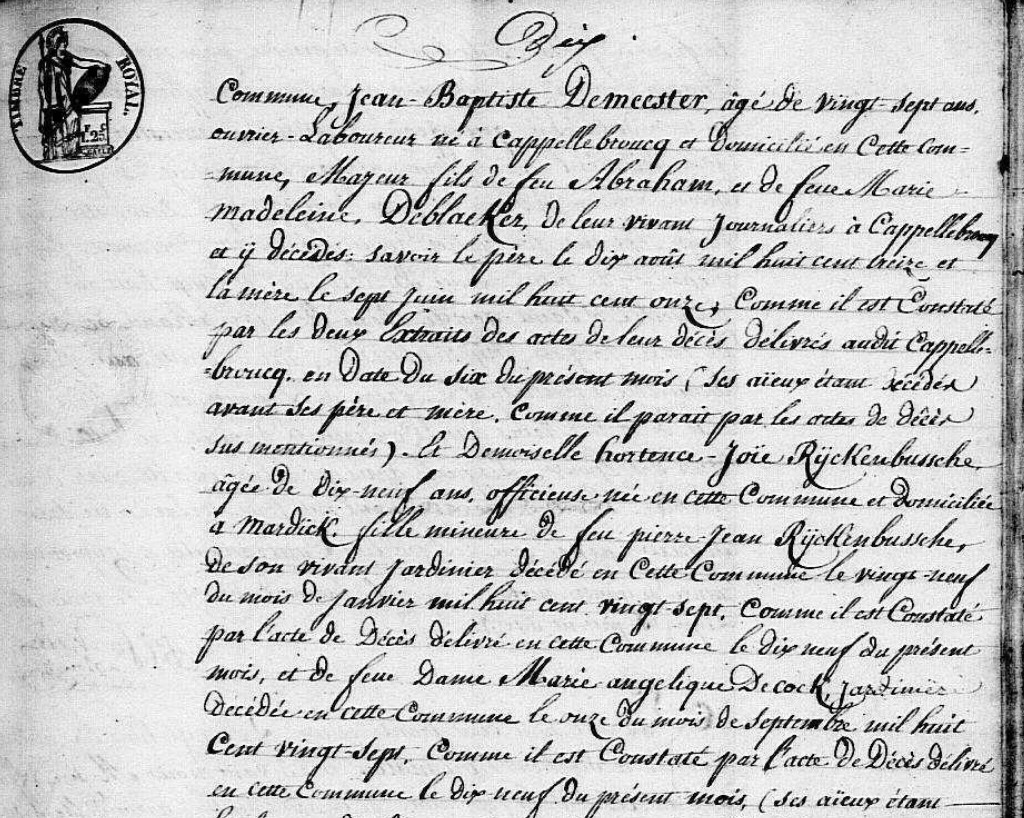 Dix.
TIMBRE ROYAL.
1.25
Commune, Jean-Baptiste Demeester, âgé de vingt-sept ans,
ouvrier-Laboureur né à Cappellebroucq et Domicilié en Cette Com-
-mune, Majeur fils de feu Abraham, et de feue Marie
madeleine, Deblaeker, de leur vivant Journaliers à Cappellebroucq
et ÿ décédés: savoir le père le dix août mil huit cent treize et
la mère le sept Juin mil huit cent onze, Comme il est Constaté
par les deux Extraits des actes de leur décès délivrés audit Cappelle-
-broucq. en Date du six du présent mois (ses aïeux étant décédés
avant ses père et mère, comme il parait par les actes de décès
sus mentionnés). Et Demoiselle hortence-Joïe Rÿckenbussche,
âgée de Dix-neuf ans, officieuse née en cette Commune et domiciliée
à Mardick, fille mineure de feu pierre Jean Rÿckenbussche,
de son vivant Jardinier décédé en Cette Commune le vingt-neuf
du mois de Janvier mil huit cent vingt-sept. Comme il est Constaté
par l'acte de Décès délivré en cette Commune le dix neuf du présent
mois, et de feue Dame Marie angelique Decock, Jardinière
Décédée en cette Commune le onze du mois de Septembre mil huit
Cent vingt-sept, Comme il est Constaté par l'acte de Décès délivré
en cette Commune le dix neuf du présent mois, (ses aïeux étant